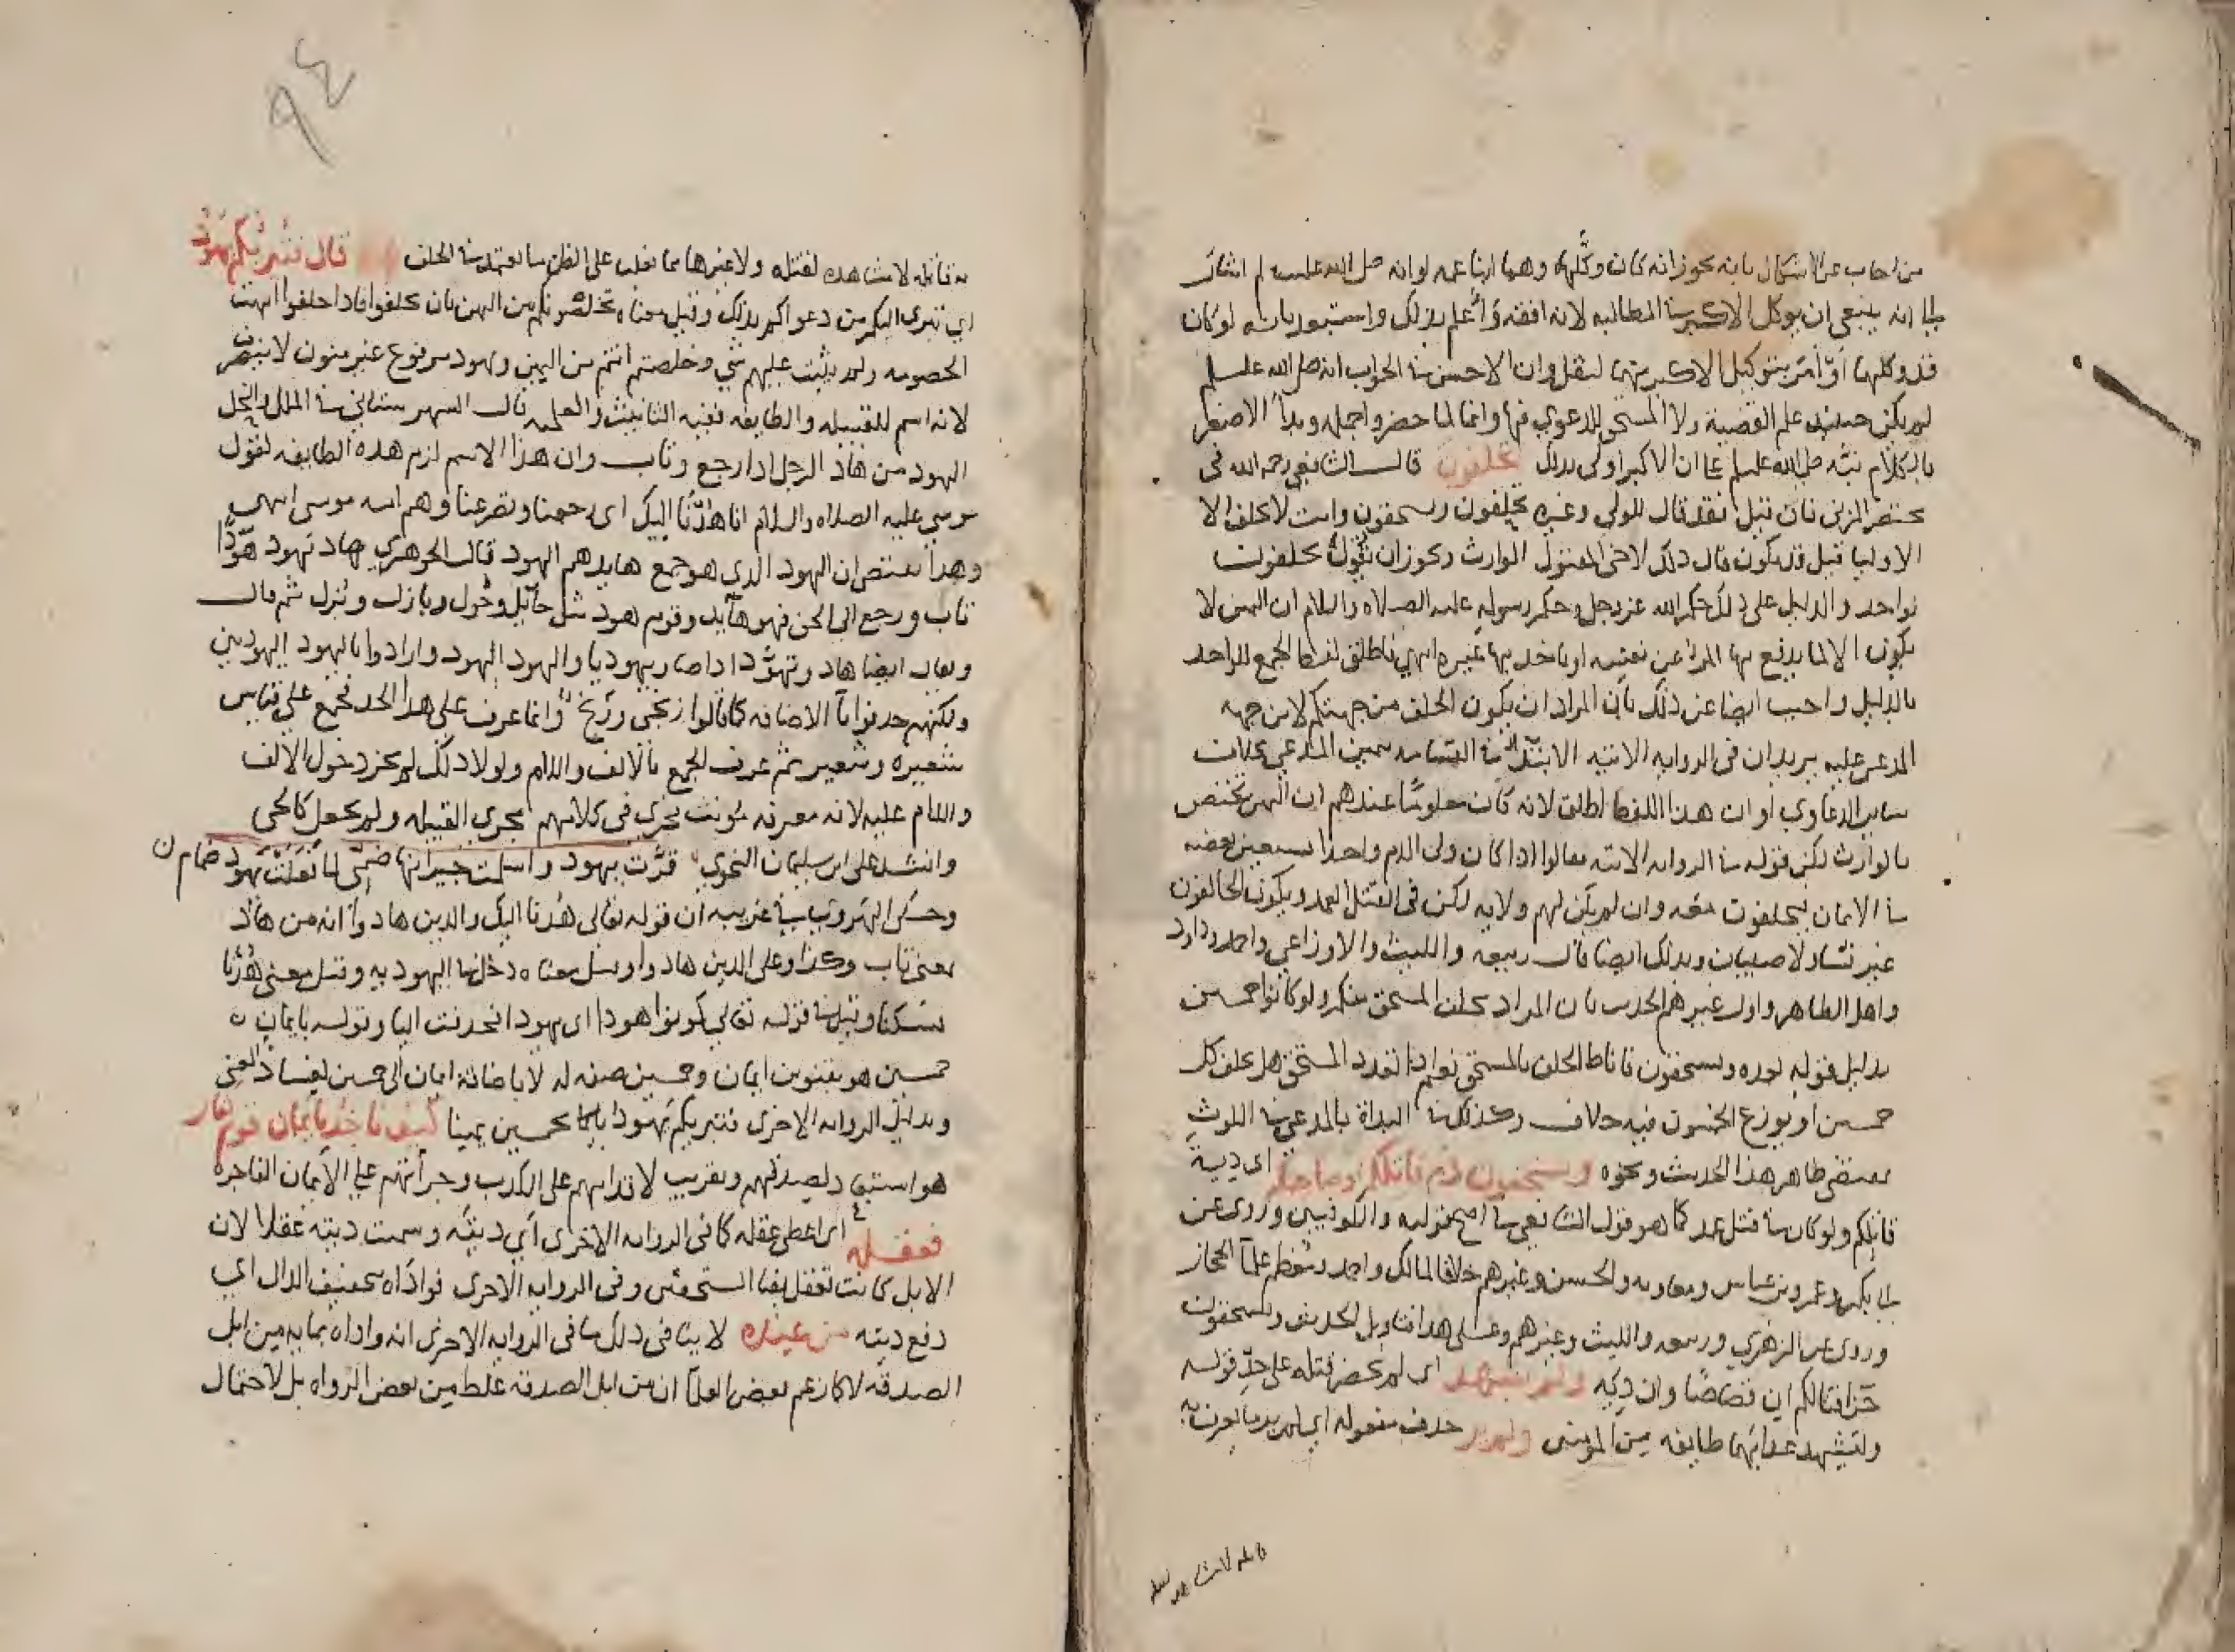 من اجاب عن الاشكال بانه يجوز انه كان وكلهما وهما ابنا عمه لو انه صلى الله عليه وسلم اشار
الى انه ينبغي ان يوكل الاكبر في المطالبة لانه افقه وأعلم بذلك واستبعد بانه لو كان
قد وكلهما أو أمر بتوكيل الاكبر منهما لنقل وان الاحسن في الجواب انه صلى الله عليه وسلم
لم يكن حينئذ علم القضية ولا المستحق للدعوي فيها وانما لما حضروا جمله وبدأ الاصغر
بالكلام نبّه صلى الله عليه وسلم على ان الاكبر اولى بذلك تحلفون قال الشافعي رحمه الله في
مختصر المزني فان قيل فقد قال للولي وغيره تحلفون وتستحقون وانت لا تحلف الا
الاوليا قيل قد يكون قال ذلك لاخي المقتول الوارث ويجوز ان يقول تحلفون
لواحد والدليل على ذلك حكم الله عز وجل وحكم رسوله عليه الصلاه والسلام ان اليمين لا
يكون الا لما يدفع بها المرء عن نفسه او ياخذ بها غيره انتهي فاطلق لفظ الجمع للواحد
بالدليل واجيب ايضا عن ذلك بأن المراد ان يكون الحلف من جهتكم لا من جهه
المدعى عليه يريد ان في الروايه الاتيه الابتدا في القسامه بيمين المدعي بخلاف
ساير الدعاوي او ان هذا اللفظ اطلق لانه كان معلومًا عندهم ان اليمين تختص
بالوارث لكن قوله في الروايه الاتيه فقالوا اذا كان ولى الدم واحدا يستعين بعصبه
في الايمان يحلفون معه وان لم يكن لهم ولايه لكن في القتل العمد ويكون الحالفون
غير نساء ولا صبيان وبذلك ايضا قال ربيعه والليث والاوزاعي واحمد وداود
واهل الظاهر واول غيرهم الحديث بان المراد يحلف المستحق منكم ولو كانوا خمسين
بدليل قوله بعده وتستحقون فاناط الحلف بالمستحق نعم اذا تعدد المستحق هل يحلف كل
خمسين او يوزع الخمسون فيه خلاف وكذلك في البداة بالمدعي في اللوث
مقتضى ظاهر هذا الحديث ونحوه وتستحقون دم قاتلكم او صاحبكم اي دية
قاتلكم ولو كان في قتل عمد كما هو قول الشافعي في اصح قوليه والكوفيين وروى عن
ابي بكر وعمر وبن عباس ومعاويه والحسن وغيرهم خلافا لمالك واحمد ومعظم علمآ الحجاز
وروى عن الزهري وربيعه والليث وغيرهم وعلى هذا فتاويل الحديث وتستحقون
جزا قتالكم اي قصاصًا وان ديه ولم نشهد اي لم نحضر قتله على حدّ قوله
وليشهد عذابهما طايفه من المومنين ولم نر حذف مفعوله اي لم نر ما يعرف به
قاتله لا مشاهده لقتله
٩٤
به قاتله لا مشاهده لقتله ولا غيرها مما يغلب على الظن ما يعتمد في الحلف قال فتبرئكم يهود
اي تبرى اليكم من دعواكم بذلك وقيل معناه تخلصونكم من اليمين بان يحلفوا فاذا حلفوا انتهت
الخصومه ولم يثبت عليهم شي وخلصتم انتم من اليمين ويهود مرفوع غير منون لا ينصرف
لانه اسم للقبيله والطايفه ففيه التانيث والعلميه قال الشهرستاني في الملل والنحل
اليهود من هاد الرجل اذا رجع وتاب وان هذا الاسم لزم هذه الطايفه لقول
موسى عليه الصلاه والسلام انا هدنا اليك اي رجعنا وتضرعنا وهم امه موسى انتهى
وهذا يقتضي ان اليهود الذي هو جمع هايد هم اليهود قال الجوهري هاد يهود هودًا
تاب ورجع الى الحق فهو هآيد وقوم هود مثل حآيل وحُول وبازل وبُزل ثم قال
ويقال ايضا هاد وتهوّد اذا صار يهوديا والهود اليهود وارادوا باليهود اليهوديين
ولكنهم حذفوا يآ الاضافه كما قالوا زنجى وزنج وانما عرف على هذا الحد فجمع على قياس
شعيره وشعير ثم عرف الجمع بالالف واللام ولولا ذلك لم يجز دخول الالف
واللام عليه لانه معرفه مونث يجري في كلامهم مجرى القبيله ولم يجعل كالحي
وانشد على ابن سليمان النحوي فرّت يهود واسلمت جيرانها صَمّى لما فَعَلَت يهود صمام ن
وحكى الهروي في غريبه ان قوله تعالى هُدنا اليك والذين هادوا انه من هاد
بمعنى تاب وكذا وعلى الذين هادوا وقيل معناه دخلوا اليهوديه وقيل معنى هُدنا
سكنا وقيل في قوله تعالى كونوا هودا اي يهودا فحذفت اليا وقوله بايمان ن
خمسين هو بتنوين ايمان وخمسين صفه له لا باضافه ايمان الى خمسين لفساد المعنى
وبدليل الروايه الاخرى فتبريكم يهود بايمان خمسين يمينا كيف ناخذ بايمان قوم كفار
هو استبعاد لصدقهم وتقريب لاقدامهم على الكذب وجرأتهم على الأيمان الفاجره
فعقله اي اعطى عقله كما في الروايه الاخرى اي ديته وسميت ديته عقلا لان
الابل كانت تعقل بفنا المستحقين وفى الروايه الاخرى فوداه بتخفيف الدال اي
دفع ديته من عنده لا ينافي ذلك ما في الروايه الاخرى انه واداه بمايه من ابل
الصدقه لا كما زعم بعض العلمآ ان من ابل الصدقه غلط من بعض الرواه بل لاحتمال